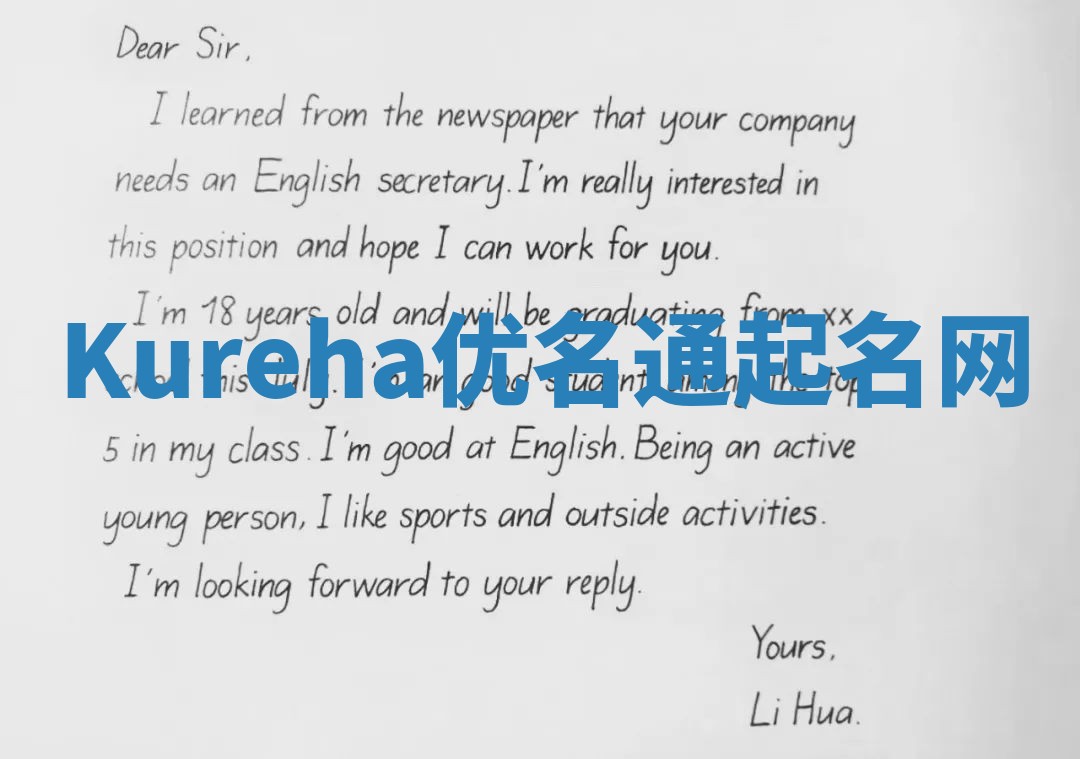 Dear Sir,
I learned from the newspaper that your company
needs an English secretary. I'm really interested in
this position and hope I can work for you.
I'm 18 years old and will be graduating from xx
Kureha优名通起名网
this July. good student among the top
5 in my class. I'm good at English. Being an active
young person, I like sports and outside activities.
I'm looking forward to your reply.
Yours,
Li Hua.